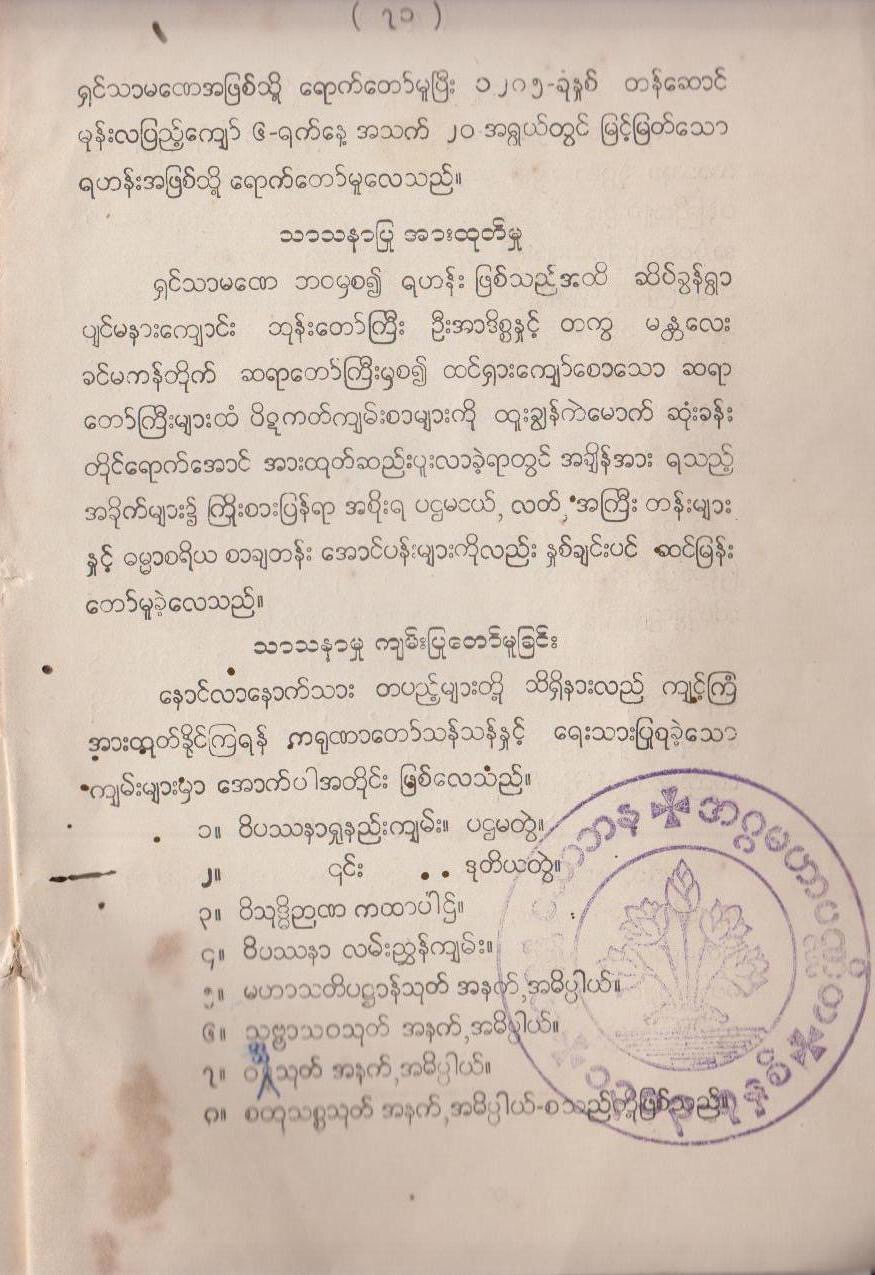 ( ၇၁ )
ရှင်သာမဏေအဖြစ်သို့ ရောက်တော်မူပြီး ၁၂၈၅-ခုနှစ် တန်ဆောင်
မုန်းလပြည့်ကျော် ၆-ရက်နေ့ အသက် ၂၀ အရွယ်တွင် မြင့်မြတ်သော
ရဟန်းအဖြစ်သို့ ရောက်တော်မူလေသည်။
သာသနာပြု အားထုတ်မှု
ရှင်သာမဏေ ဘဝမှစ၍ ရဟန်း ဖြစ်သည်အထိ ဆိပ်ခွန်ရွာ
ပျဉ်မနားကျောင်း ဘုန်းတော်ကြီး ဦးအာဒိစ္စနှင့် တကွ မန္တလေး
ခင်မကန်တိုက် ဆရာတော်ကြီးမှစ၍ ထင်ရှားကျော်စောသော ဆရာ
တော်ကြီးများထံ ပိဋကတ်ကျမ်းစာများကို ထူးချွန်ကဲမောက် ဆုံးခန်း
တိုင်ရောက်အောင် အားထုတ်ဆည်းပူးလာခဲ့ရာတွင် အချိန်အား ရသည့်
အခိုက်များ၌ ကြိုးစားပြန်ရာ အစိုးရ ပဌမငယ်, လတ်, အကြီး တန်းများ
နှင့် ဓမ္မာစရိယ စာချတန်း အောင်ပန်းများကိုလည်း နှစ်ချင်းပင် ဆင်မြန်း
တော်မူခဲ့လေသည်။
သာသနာမှု ကျမ်းပြုတော်မူခြင်း
နောင်လာနောက်သား တပည့်များတို့ သိရှိနားလည် ကျင့်ကြံ
အားထုတ်နိုင်ကြရန် ကရုဏာတော်သန်သန်နှင့် ရေးသားပြုစုခဲ့သော
ကျမ်းများမှာ အောက်ပါအတိုင်း ဖြစ်လေသည်။
၁။ ဝိပဿနာရှုနည်းကျမ်း။ ပဌမတွဲ။
၂။ ၎င်း .. ဒုတိယတွဲ။
၃။ ဝိသုဒ္ဓိဉာဏ ကထာပါဌ်။
၄။ ဝိပဿနာ လမ်းညွှန်ကျမ်း။
၅။ မဟာသတိပဋ္ဌာန်သုတ် အနက်,အဓိပ္ပါယ်။
၆။ သဗ္ဗာသဝသုတ် အနက်,အဓိပ္ပါယ်။
၇။ သုတ် အနက်,အဓိပ္ပါယ်။
၈။ စတုသစ္စသုတ် အနက်,အဓိပ္ပါယ်-စသည်တို့ဖြစ်သည်။
အဂ္ဂမဟာပဏ္ဍိတ